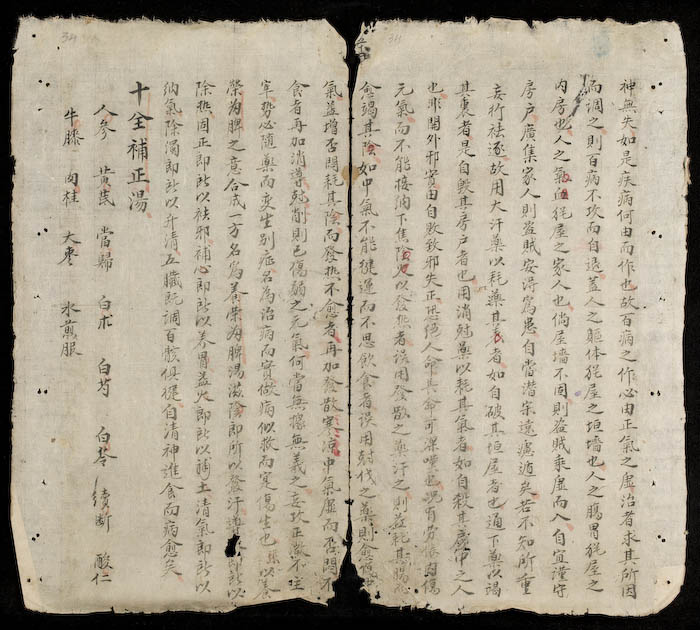 神無失如是疾病何由而作也故百病之作必由正氣之虛治者求其所因
而調之則百病不攻而自退蓋人之軀体猶屋之垣墻也人之腸胃猶屋之
内房也人之氣血猶屋之家人也倘屋墻不固則盗賊乘虛而入自宜謹守
房户啓集家人則盗賊安得為患自當潜宗遠慮逍矣若不知所重
妄行祛逐故用大汗藥以耗藥其表者如自破其垣屋者也通下藥以竭
其裏者是自毁其房户者也用消尅藥以耗其氣者如自殺其屋中之人
也非関外邪實由自敗致邪失正恐絕人命其命可深嘆也况有劳倦内傷
元氣而不能接納下焦陰火以發熱者誤用發散之藥汗之則益耗其陽
愈竭其陰如中氣不能健運而不思飲食者誤用尅伐之藥則愈
氣益增否悶耗其陰而發熱不愈者再加發散寒涼中氣虛而否悶不
食者再加消導尅削則已傷弱之元氣何當無據無義之妄攻正氣不
軍势必随藥而变生别症名為治病而實做病似救而寔傷生也以養
榮為脾之意合成一方名為養榮為脾湯滋陰即所以發汗導即所以
除熱固正即所以祛邪補心即所以養胃益火即所以補土清氣即所以
納氣除濁即所以升清五臟既調百骸俱健自清神進食而病愈矣
十全補正湯
人參 黄芪 當歸 白朮 白芍 白苓 續断 酸仁
牛膝 肉桂 大枣 水煎服
34
34